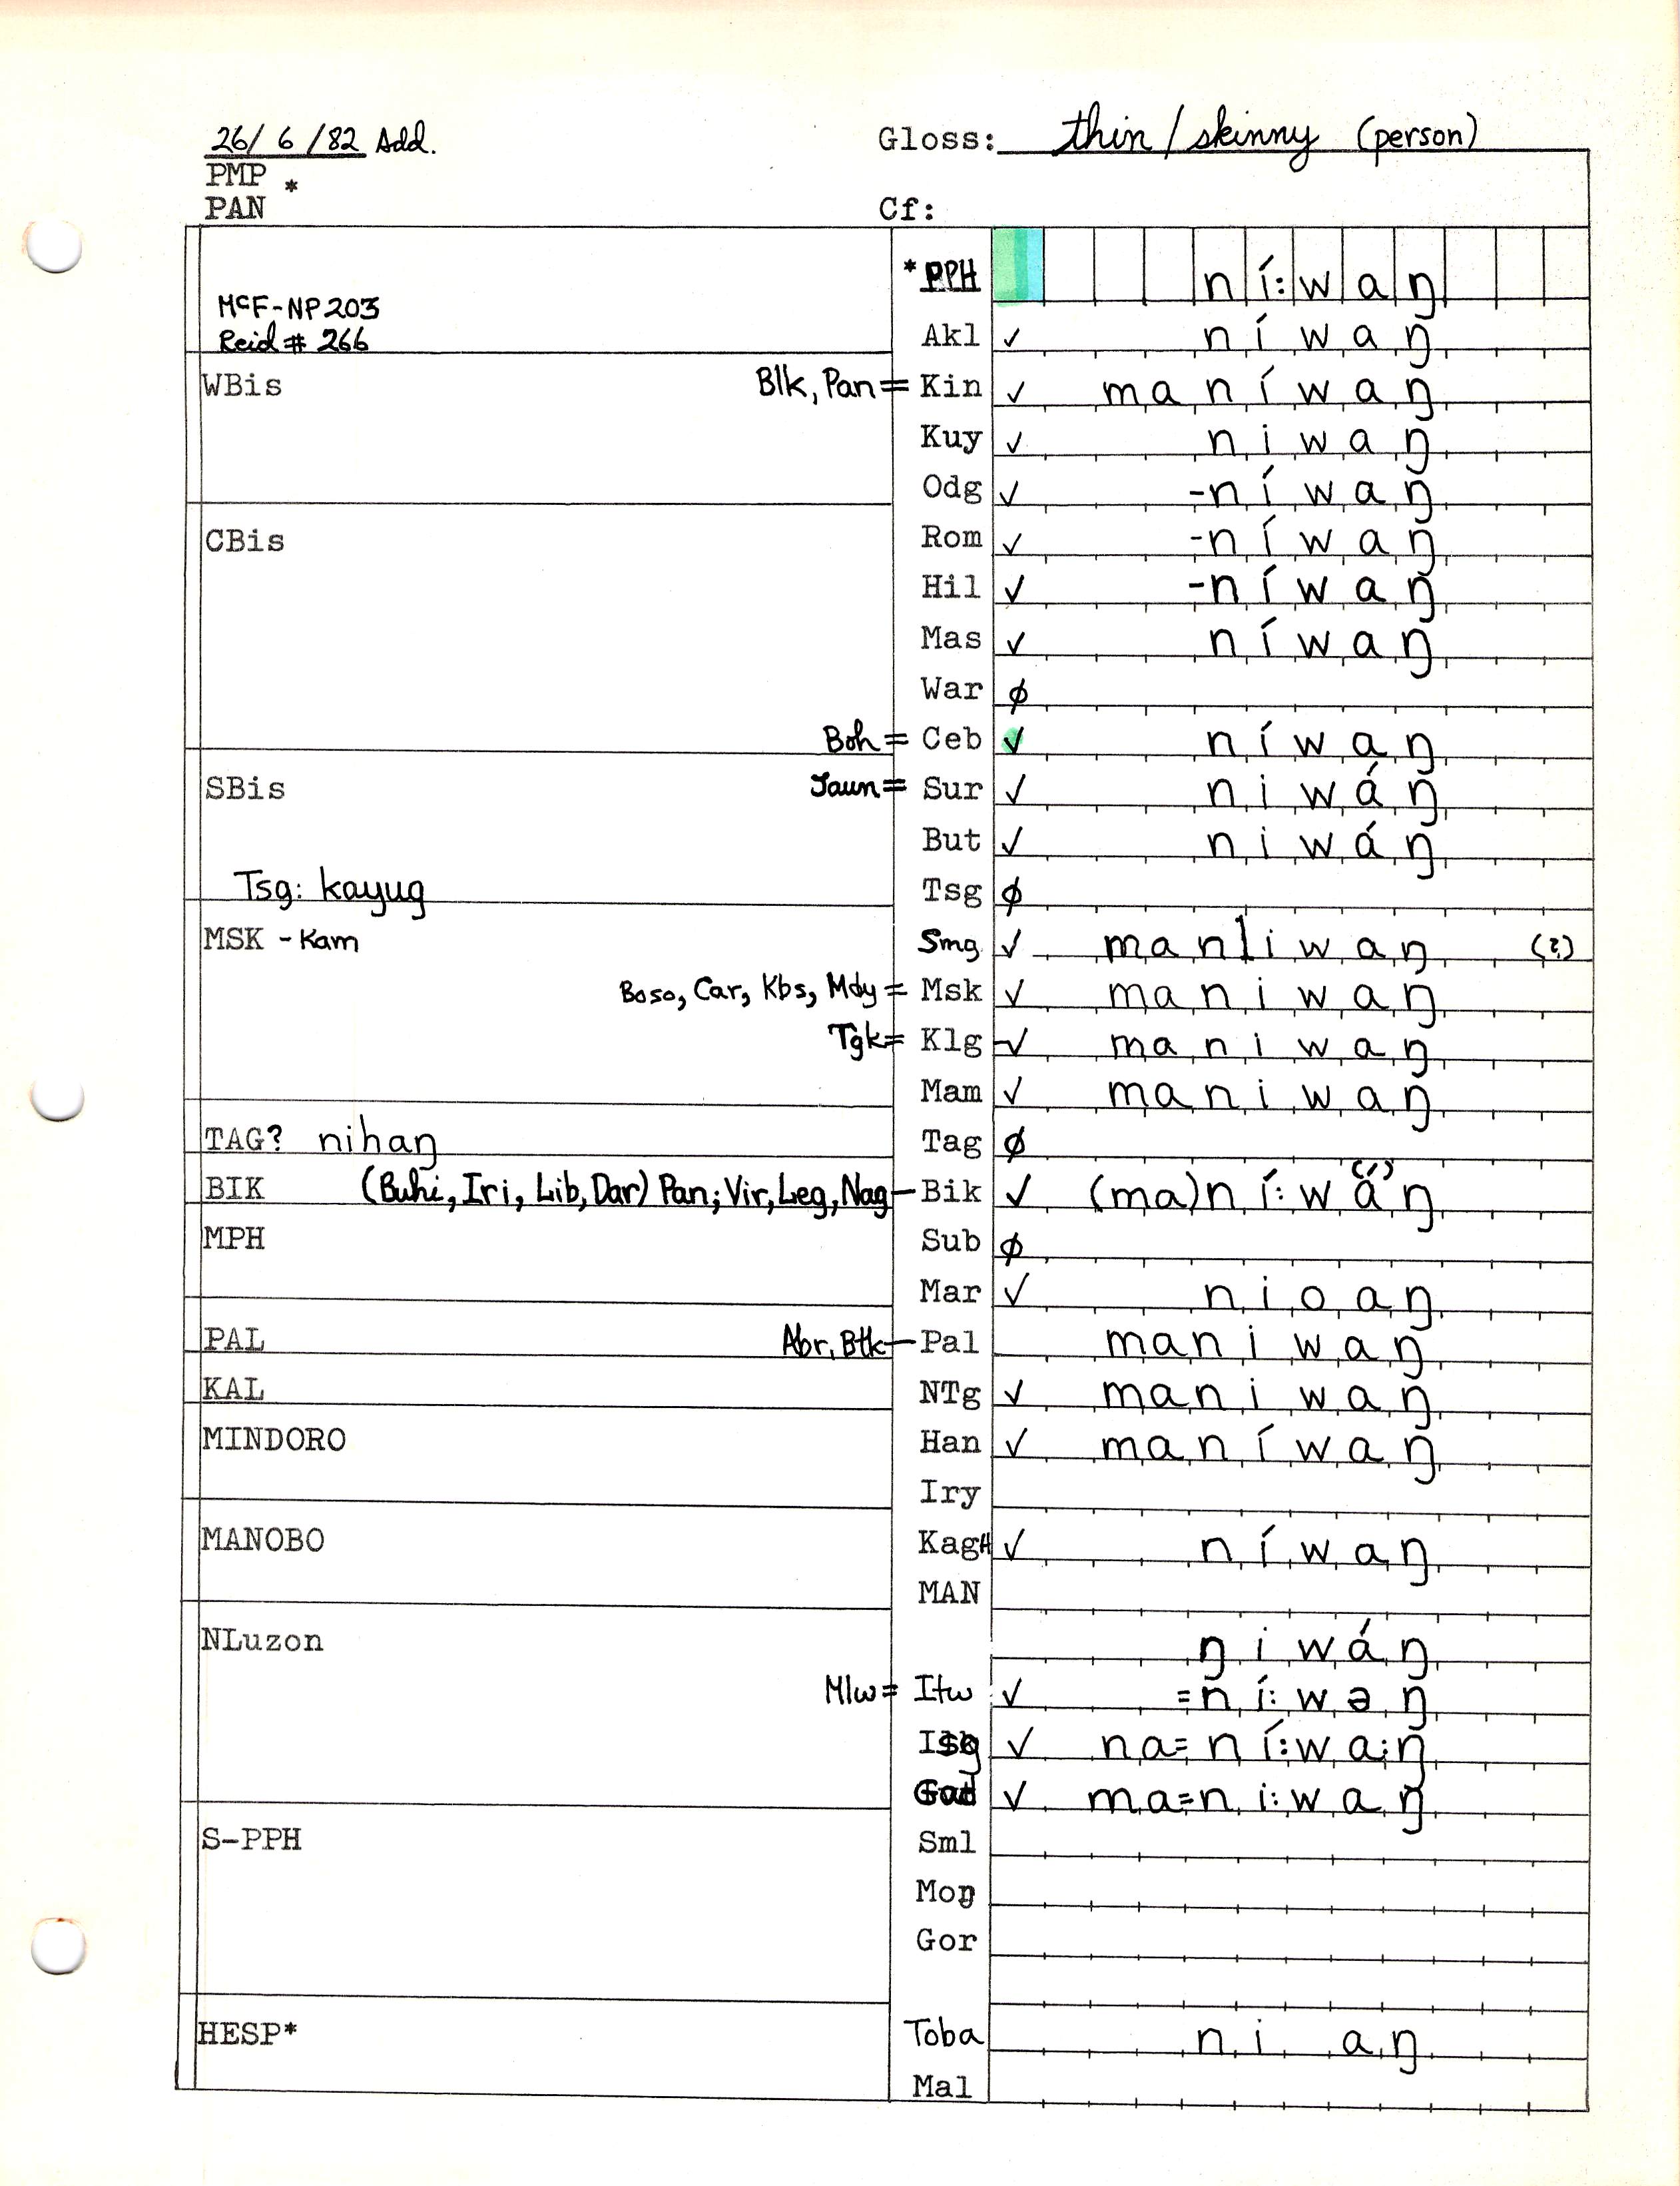 26/6/82 Add. Gloss: thin/skinny (person)
PMP *
PAN Cf:
*PPH ní:waŋ
McF-NP203
Reid # 266 Akl ✓ níwaŋ
WBis Blk, Pan = Kin ✓ maníwaŋ
Kuy ✓ niwaŋ
Odg ✓ -níwaŋ
CBis Rom ✓ -níwaŋ
Hil ✓ -níwaŋ
Mas ✓ níwaŋ
War ∅
Boh = Ceb ✓ níwaŋ
SBis Jaun = Sur ✓ niwáŋ
But ✓ niwáŋ
Tsg: kayug Tsg ∅
MSK - Kam Smg ✓ manliwaŋ (?)
Boso, Car, Kbs, Mdy = Msk ✓ maniwaŋ
Tgk = Klg ✓ maniwaŋ
Mam ✓ maniwaŋ
TAG? nihaŋ Tag ∅
BIK (Buhi, Iri, Lib, Dar) Pan; Vir, Leg, Nag - Bik ✓ (ma)ní:wa(́)ŋ
MPH Sub ∅
Mar ✓ nioaŋ
PAL Abr, Btk - Pal maniwaŋ
KAL NTg ✓ maniwaŋ
MINDORO Han ✓ maníwaŋ
Iry
MANOBO KagH ✓ níwaŋ
MAN
NLuzon ŋiwáŋ
Mlw = Itw ✓ =ní:wəŋ
Isg ✓ na=ní:wa:ŋ
Gad ✓ ma=ni:waŋ
S-PPH Sml
Moŋ
Gor
HESP* Toba ni aŋ
Mal